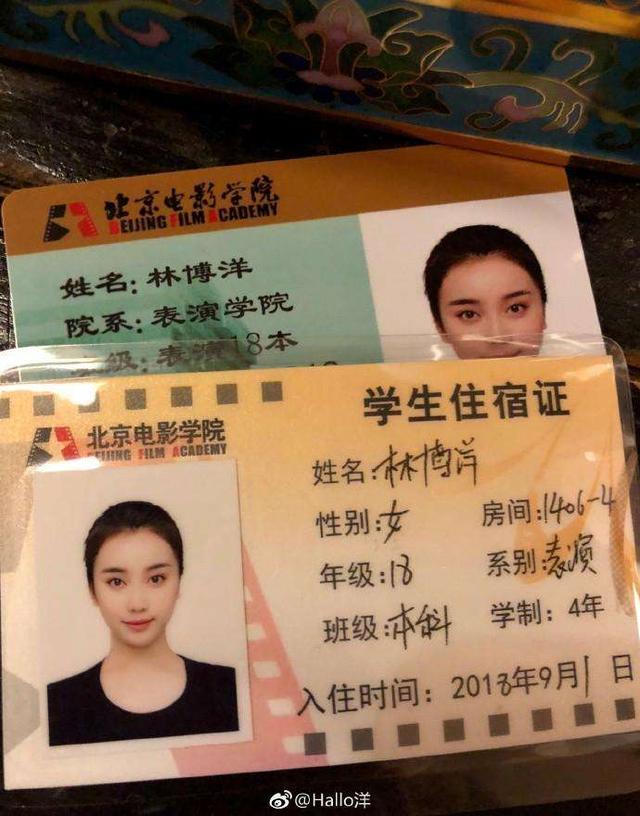 北京电影学院
BEIJING FILM ACADEMY
姓名:林博洋
院系:表演学院
级:表演18本
学生住宿证
北京电影学院
BEIJING FILM ACADEMY
姓名:林博洋
性别:女 房间:1406-4
年级:18 系别:表演
班级:本科 学制:4年
入住时间:2018年9月1日
@Hallo洋